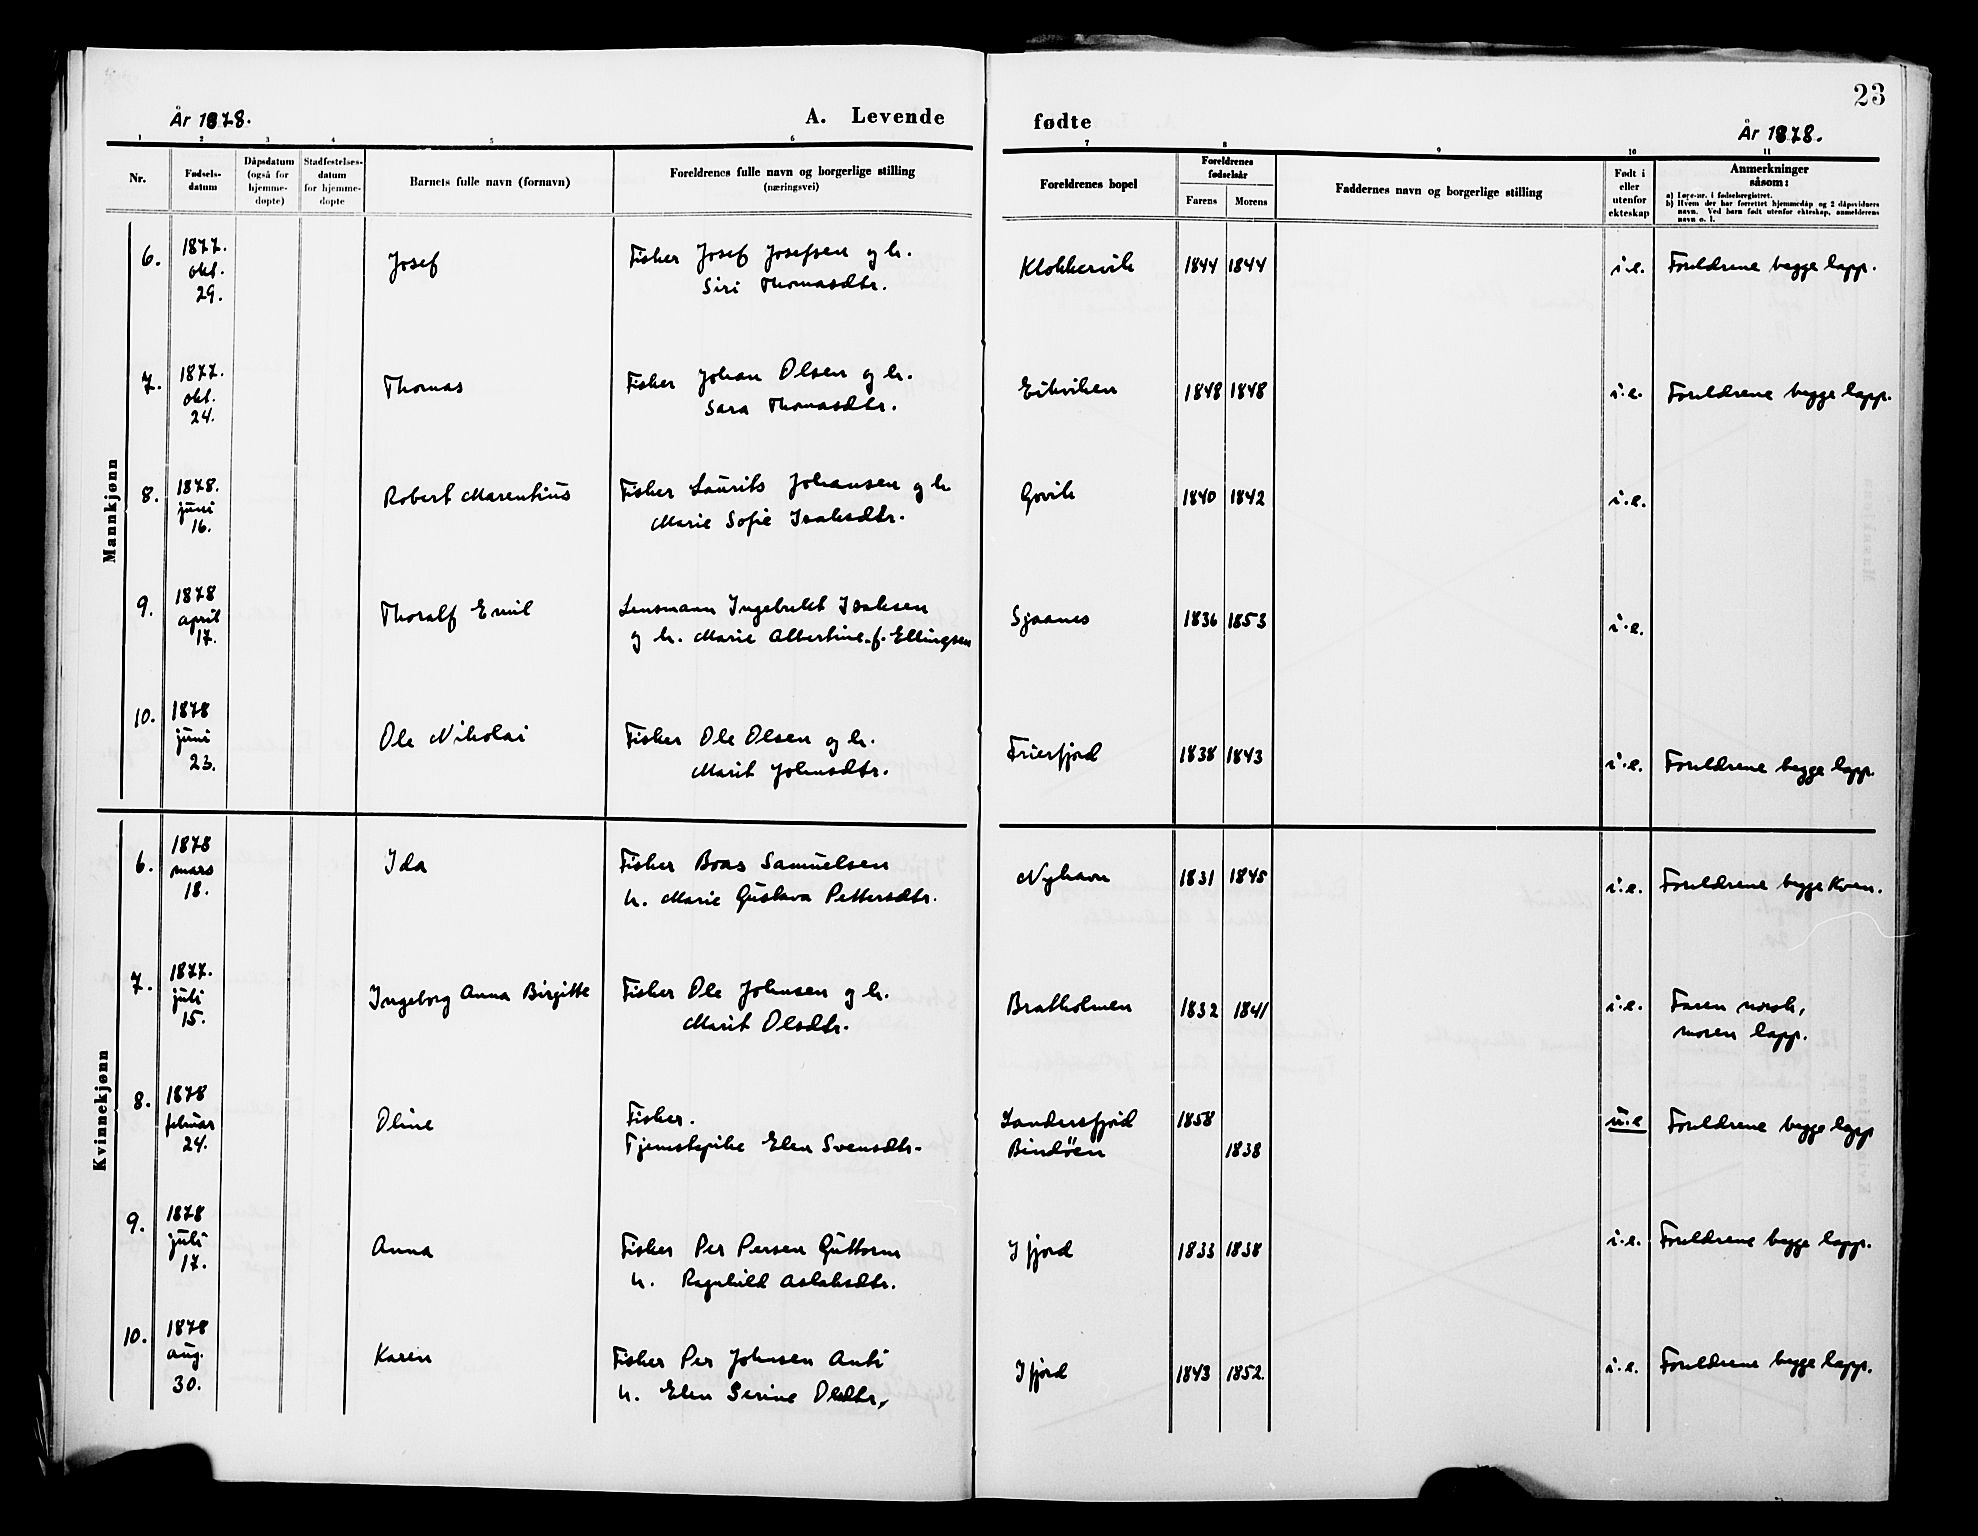 23
År 1878.
A. Levende
fødte
År 1878.
1 2 3 4 5 6 7 8 9 10 11
Nr.
Fødsels-
datum
Dåpsdatum
(også for
hjemme-
døpte)
Stadfestelses-
datum
for hjemme-
døpte
Barnets fulle navn (fornavn)
Foreldrenes fulle navn og borgerlige stilling
(næringsvei)
Foreldrenes bopel
Foreldrenes
fødselsår
Farens Morens
Faddernes navn og borgerlige stilling
Født i
eller
utenfor
ekteskap
Anmerkninger
såsom:
a) Løpe-nr. i fødselsregistret.
b) Hvem der har forrettet hjemmedåp og 2 dåpsvidners
navn. Ved barn født utenfor ekteskap, anmelderens
navn o. l.
Mannkjønn
6. 1877. okt. 29. Josef Fisker Josef Josefsen og h. Klokkervik 1844 1844 i.e. Foreldrene begge lapp.
Siri Thomasdtr.
7. 1877. okt. 24. Thomas Fisker Johan Olsen og h. Eikviken 1848 1848 i.e. Foreldrene begge lapp.
Sara Thomasdtr.
8. 1878. juni 16. Robert Marentius Fisker Laurits Johansen og h Govik 1840 1842 i.e.
Marie Sofie Isaksdtr.
9. 1878 april 17. Thoralf Emil Lensmann Ingebrikt Isaksen Sjaanes 1836 1853 i.e.
og h. Marie Albertine f. Ellingsen
10. 1878 juni 23. Ole Nikolai Fisker Ole Olsen og h. Friarfjord 1838 1843 i.e. Foreldrene begge lapp.
Marit Johnsdtr.
Kvinnekjønn
6. 1878 mars 18. Ida Fisker Boas Samuelsen Nyhavn 1831 1845 i.e. Foreldrene begge Kven.
h. Marie Gustava Pettersdtr.
7. 1877. juli 15. Ingeborg Anna Birgitte Fisker Ole Johnsen og h. Bratholmen 1832 1841 i.e. Faren norsk,
Marit Olsdtr. moren lapp.
8. 1878 februar 24. Oline Fisker. 1858 u.e. Foreldrene begge lapp
Tjenstepike Elen Svensdtr. Bindöen 1838
9. 1878 juli 17. Anna Fisker Per Persen Guttorm Ifjord 1833 1838 i.e. Foreldrene begge lapp.
h. Ragnhild Aslaksdtr.
10. 1878 aug. 30. Karen Fisker Per Johnsen Anti Ifjord 1843 1852. i.e. Foreldrene begge lapp.
h. Elen Serine Olsdtr.